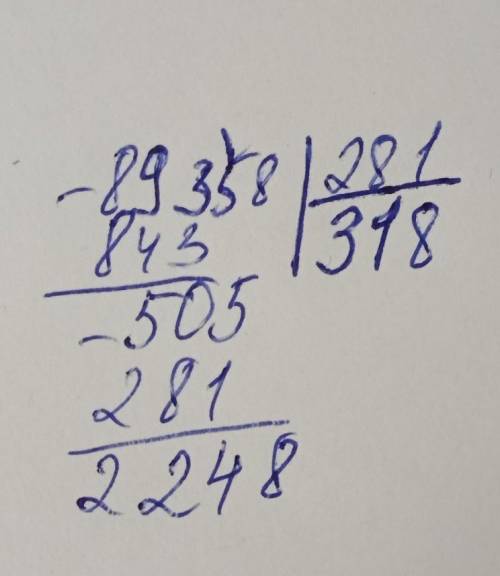 -89358 281
843 318
-505
281
2248